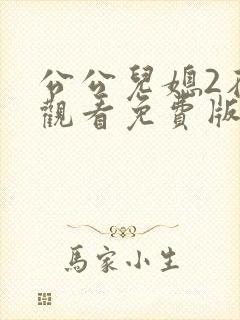 公公兒媳2
觀看免費版
馬家小生